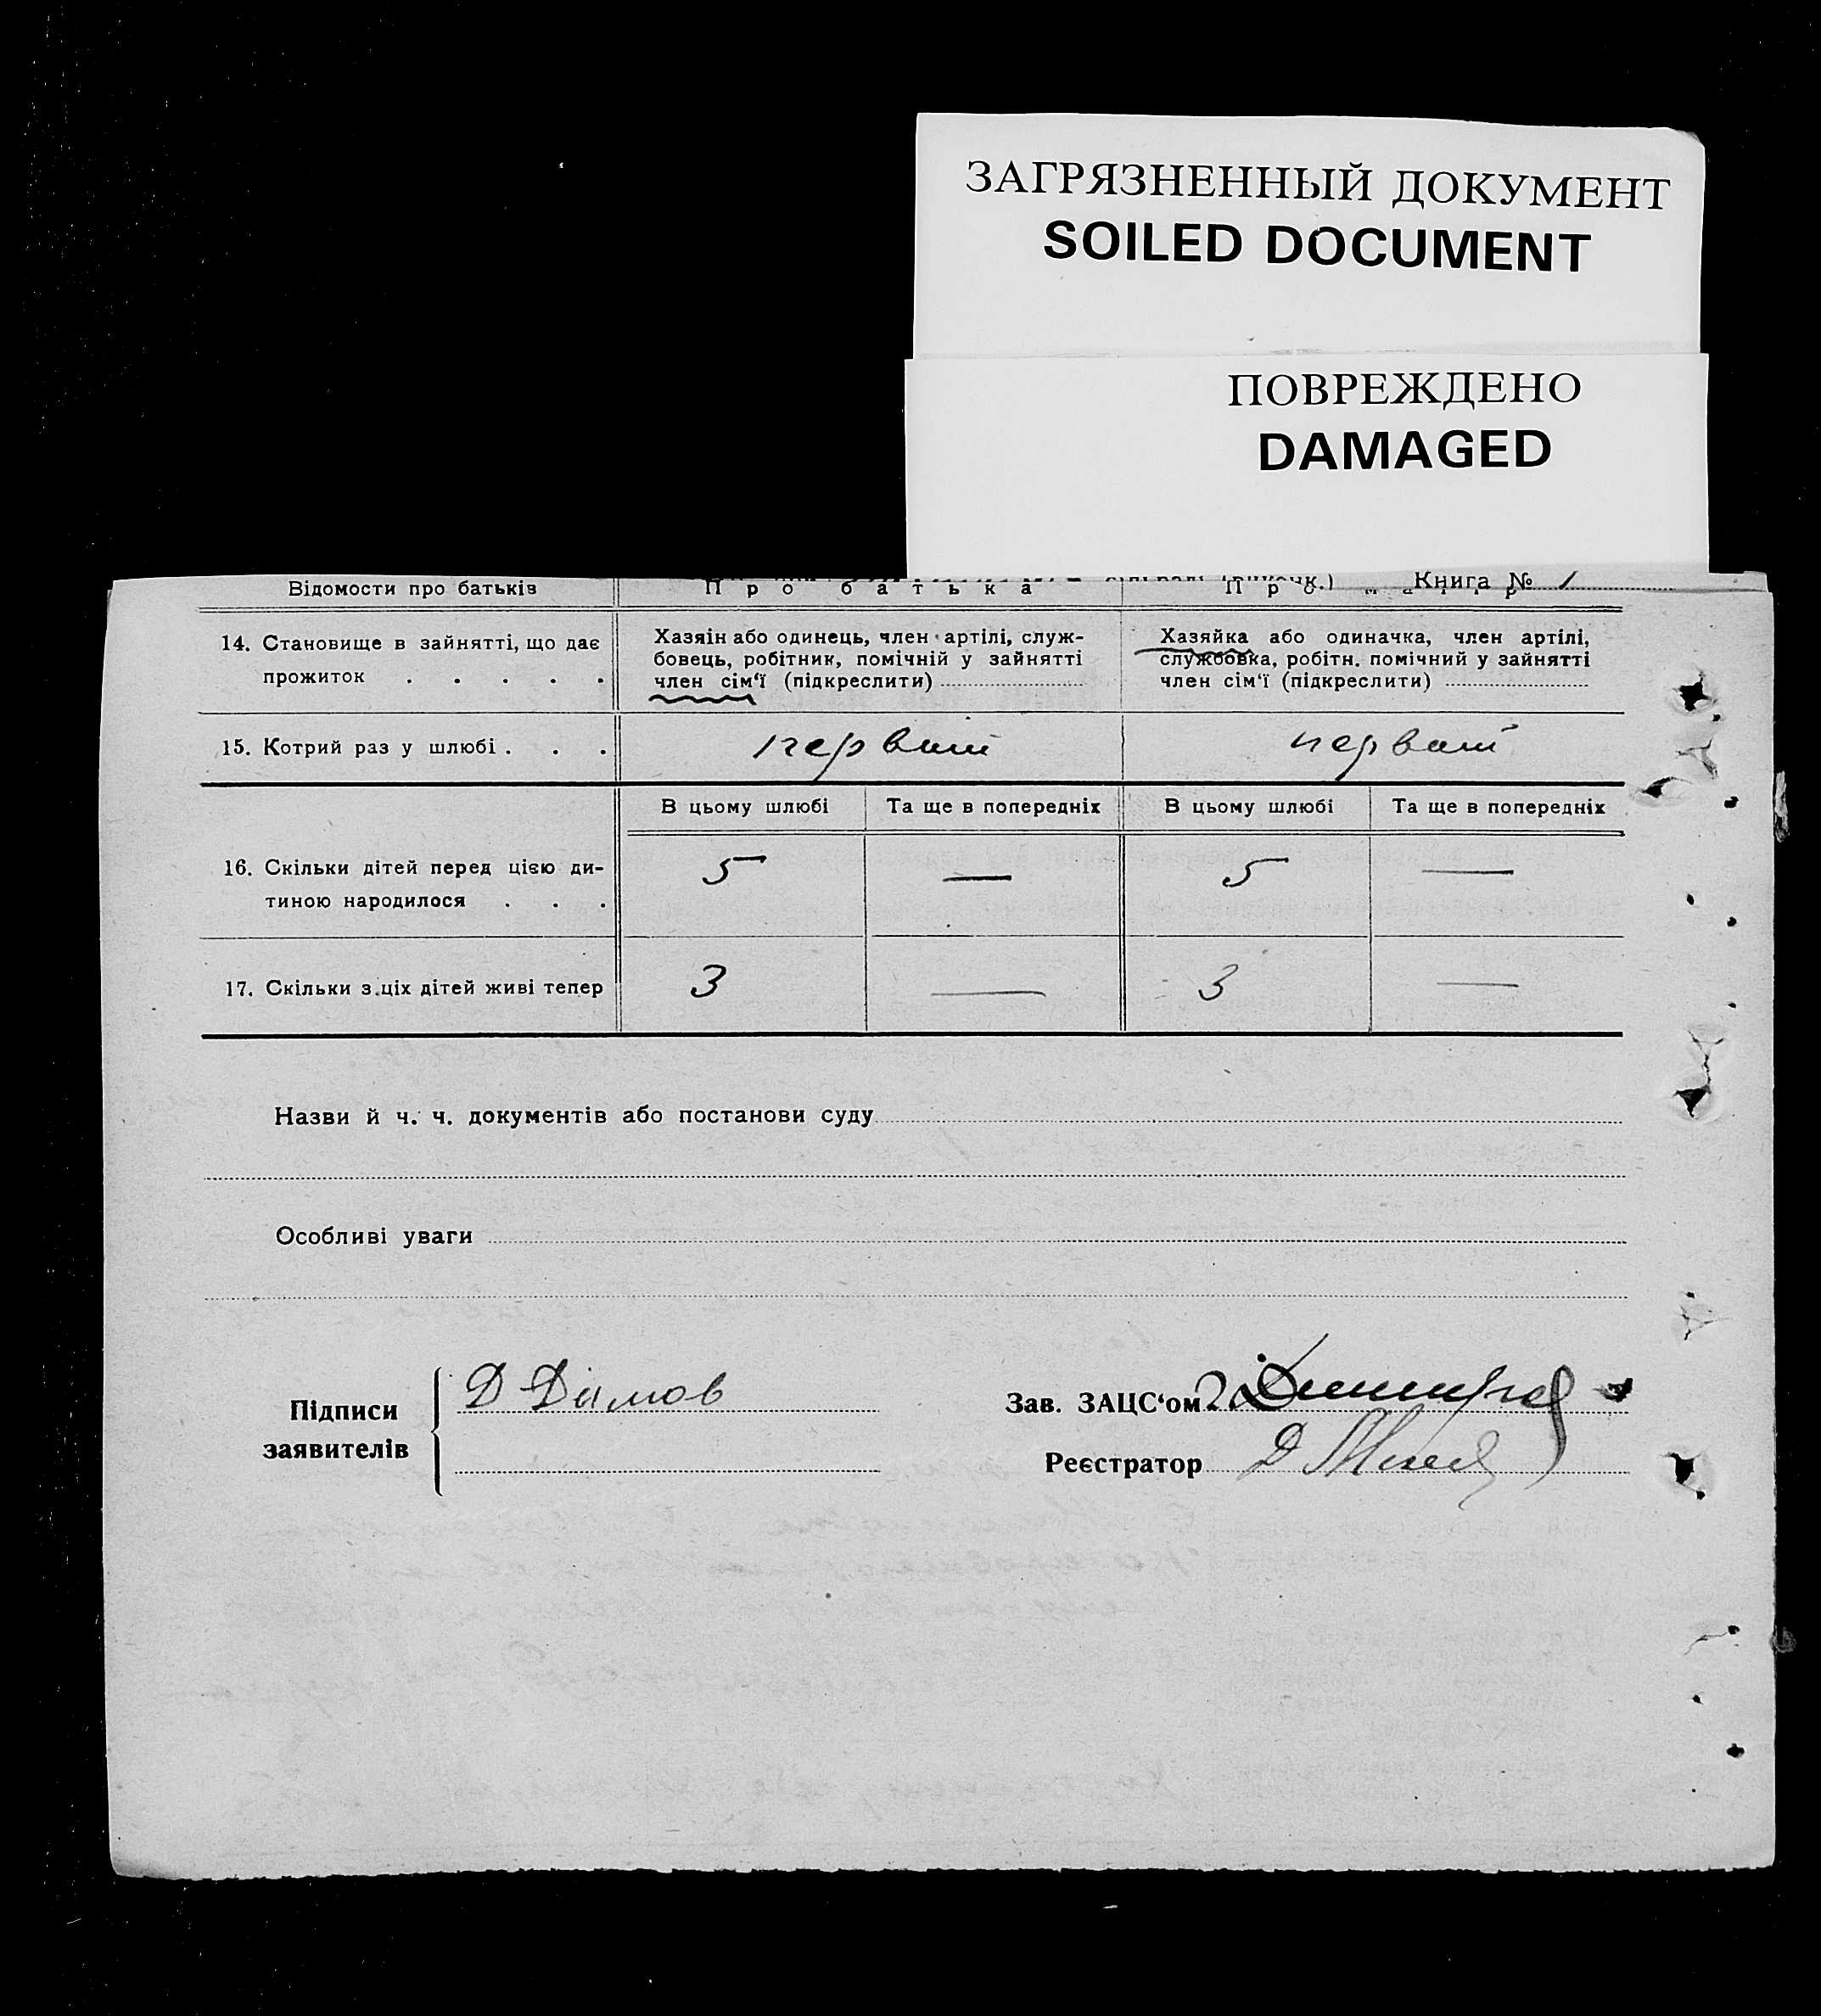 ЗАГРЯЗНЕННЫЙ ДОКУМЕНТ
SOILED DOCUMENT
ПОВРЕЖДЕНО
DAMAGED
Книга № 1
Відомости про батьків Про батька Про матір
14. Становище в зайнятті, що дає
прожиток . . . . .
Хазяїн або одинець, член артілі, служ-
бовець, робітник, помічній у зайнятті
член сім'ї (підкреслити)
Хазяйка або одиначка, член артілі,
службовка, робітн. помічний у зайнятті
член сім'ї (підкреслити)
15. Котрий раз у шлюбі . . . первий первий
В цьому шлюбі Та ще в попередніх В цьому шлюбі Та ще в попередніх
16. Скільки дітей перед цією ди-
тиною народилося . . . 5 — 5 —
17. Скільки з ціх дітей живі тепер 3 — 3 —
Назви й ч. ч. документів або постанови суду
Особливі уваги
Підписи
заявителів
Д Димов
Зав. ЗАЦС'ом
Реєстратор Д